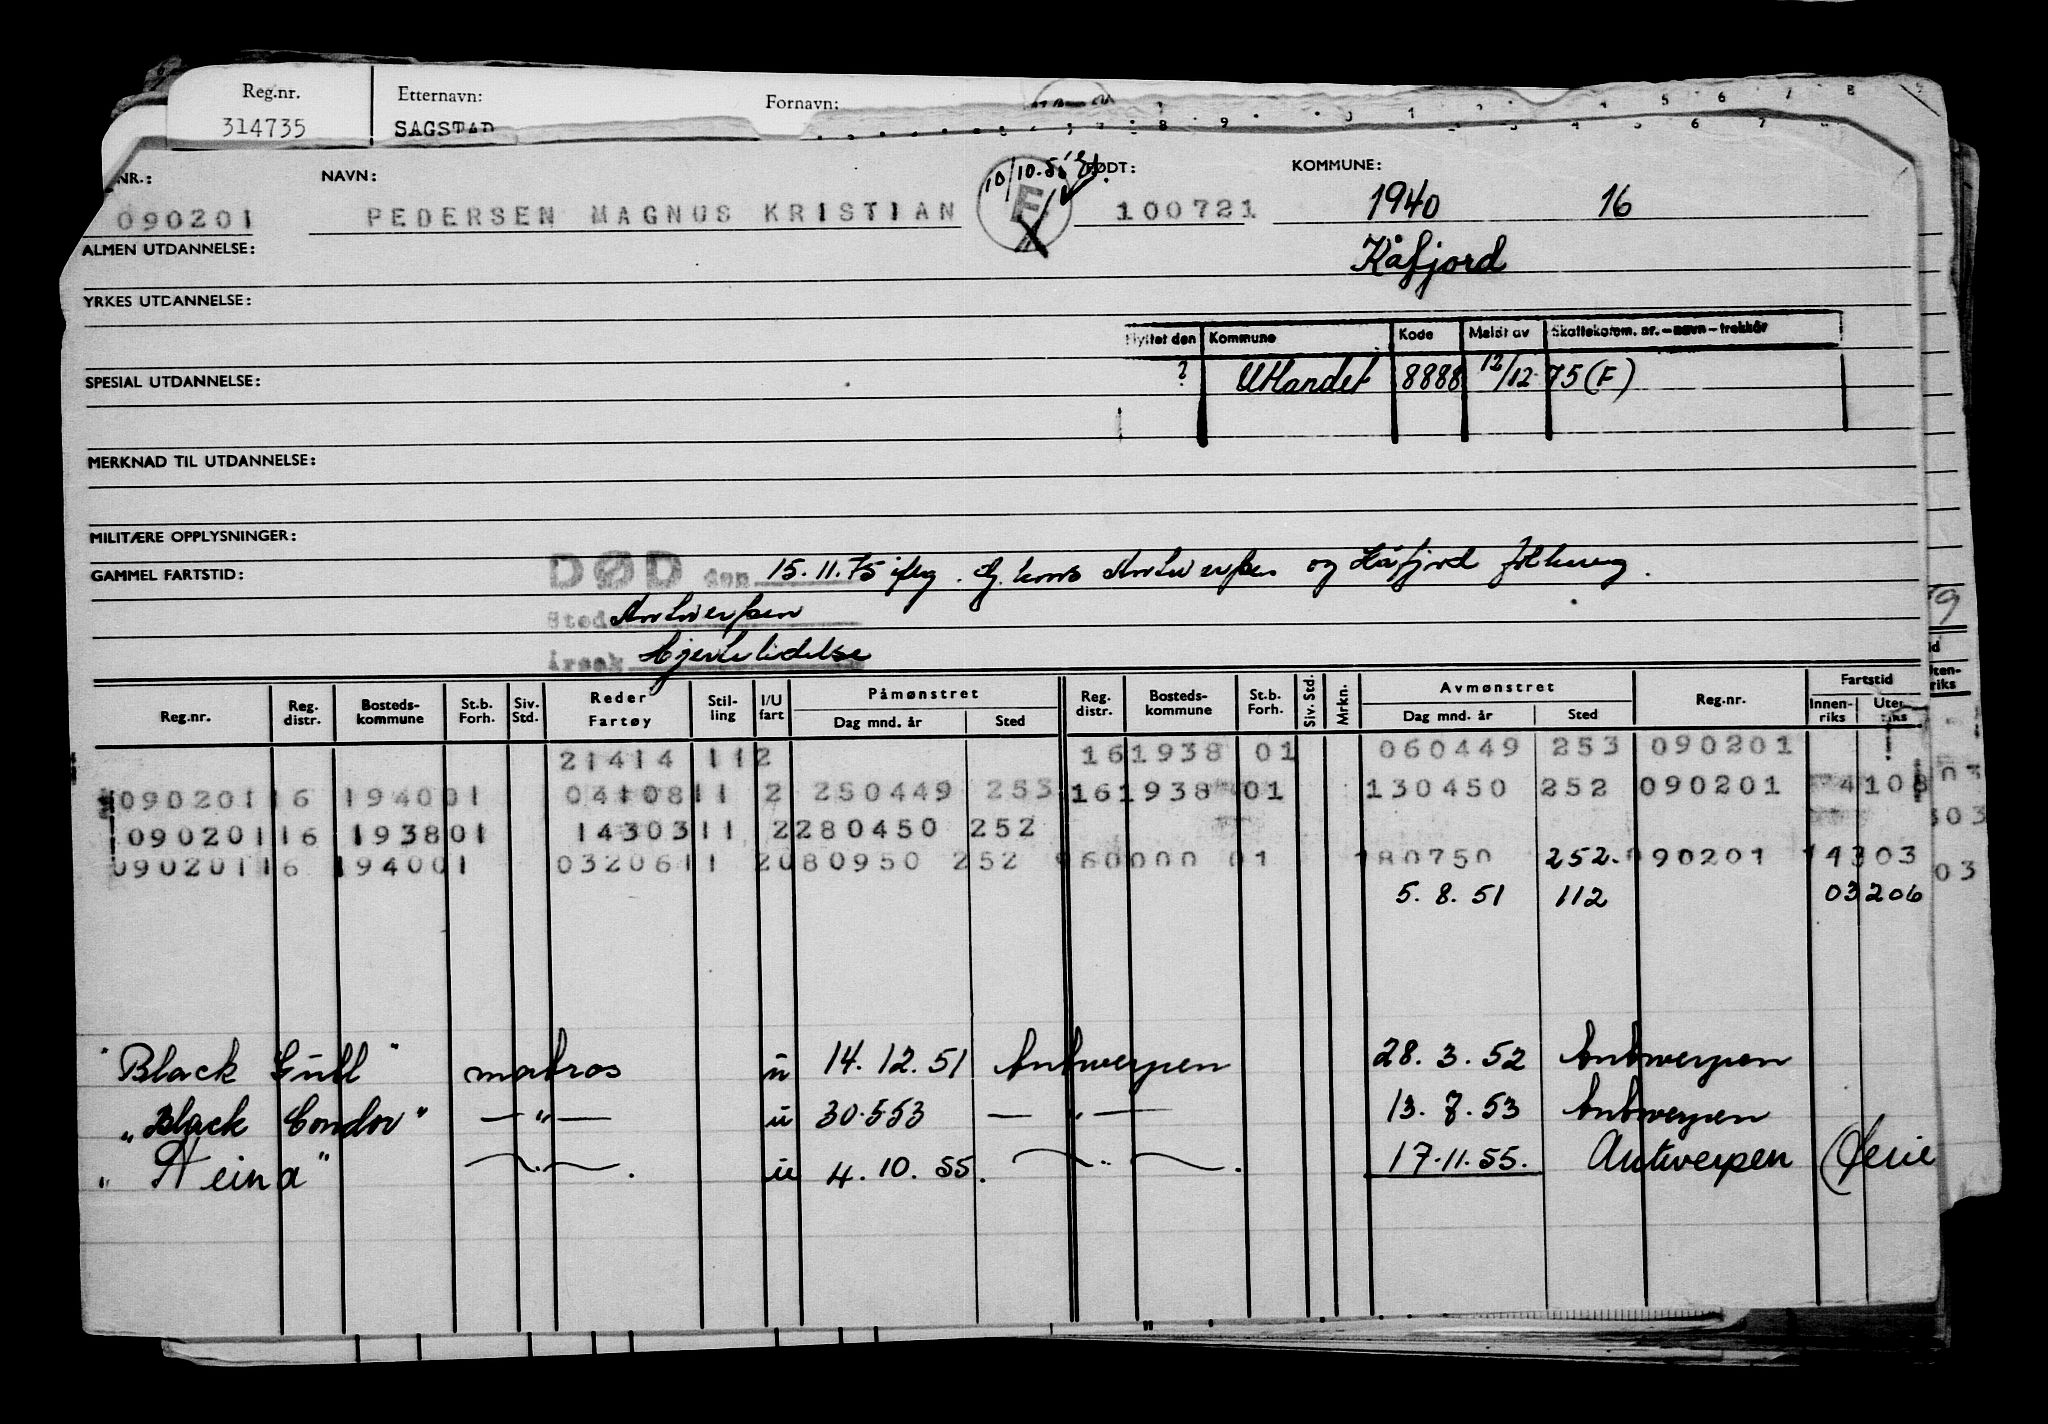 Reg.nr. Etternavn: Fornavn:
314735 SAGSTAD
NR.: NAVN: FØDT: KOMMUNE:
10/10.55
090201 PEDERSEN MAGNUS KRISTIAN E 100721 1940 16
ALMEN UTDANNELSE: Kåfjord
YRKES UTDANNELSE:
Flyttet den Kommune Kode Meldt av Skattekom. nr. – navn – trekkår
SPESIAL UTDANNELSE: ? Utlandet 8888 12/12 75 (F)
MERKNAD TIL UTDANNELSE:
MILITÆRE OPPLYSNINGER:
GAMMEL FARTSTID: DØD den 15.11.75 iflg. g. kons Antwerpen og Kåfjord f.
Sted Antwerpen
Årsak Hjertelidelse
Reg.nr. Reg. distr. Bosteds-kommune St.b. Forh. Siv. Std. Reder Fartøy Stil-ling I/U fart Påmønstret Dag mnd. år Sted Reg. distr. Bosteds-kommune St.b. Forh. Siv. Std. Mrkn. Avmønstret Dag mnd. år Sted Reg.nr. Fartstid Innen-riks Uten-riks
21414 11 2 16 1938 01 060449 253 090201
090201 16 1940 01 04108 11 2 250449 253 16 1938 01 130450 252 090201 4108
090201 16 1938 01 14303 11 2 280450 252
090201 16 1940 01 03206 11 2 080950 252 960000 01 180750 252. 090201 14303
5.8.51 112 03206
"Black Gull" matros u 14.12.51 Antwerpen 28.3.52 Antwerpen
"Black Condor" —"— u 30.553 —"— 13.7.53 Antwerpen
"Heina" —"—. u 4.10.55. —"—. 17.11.55. Antwerpen